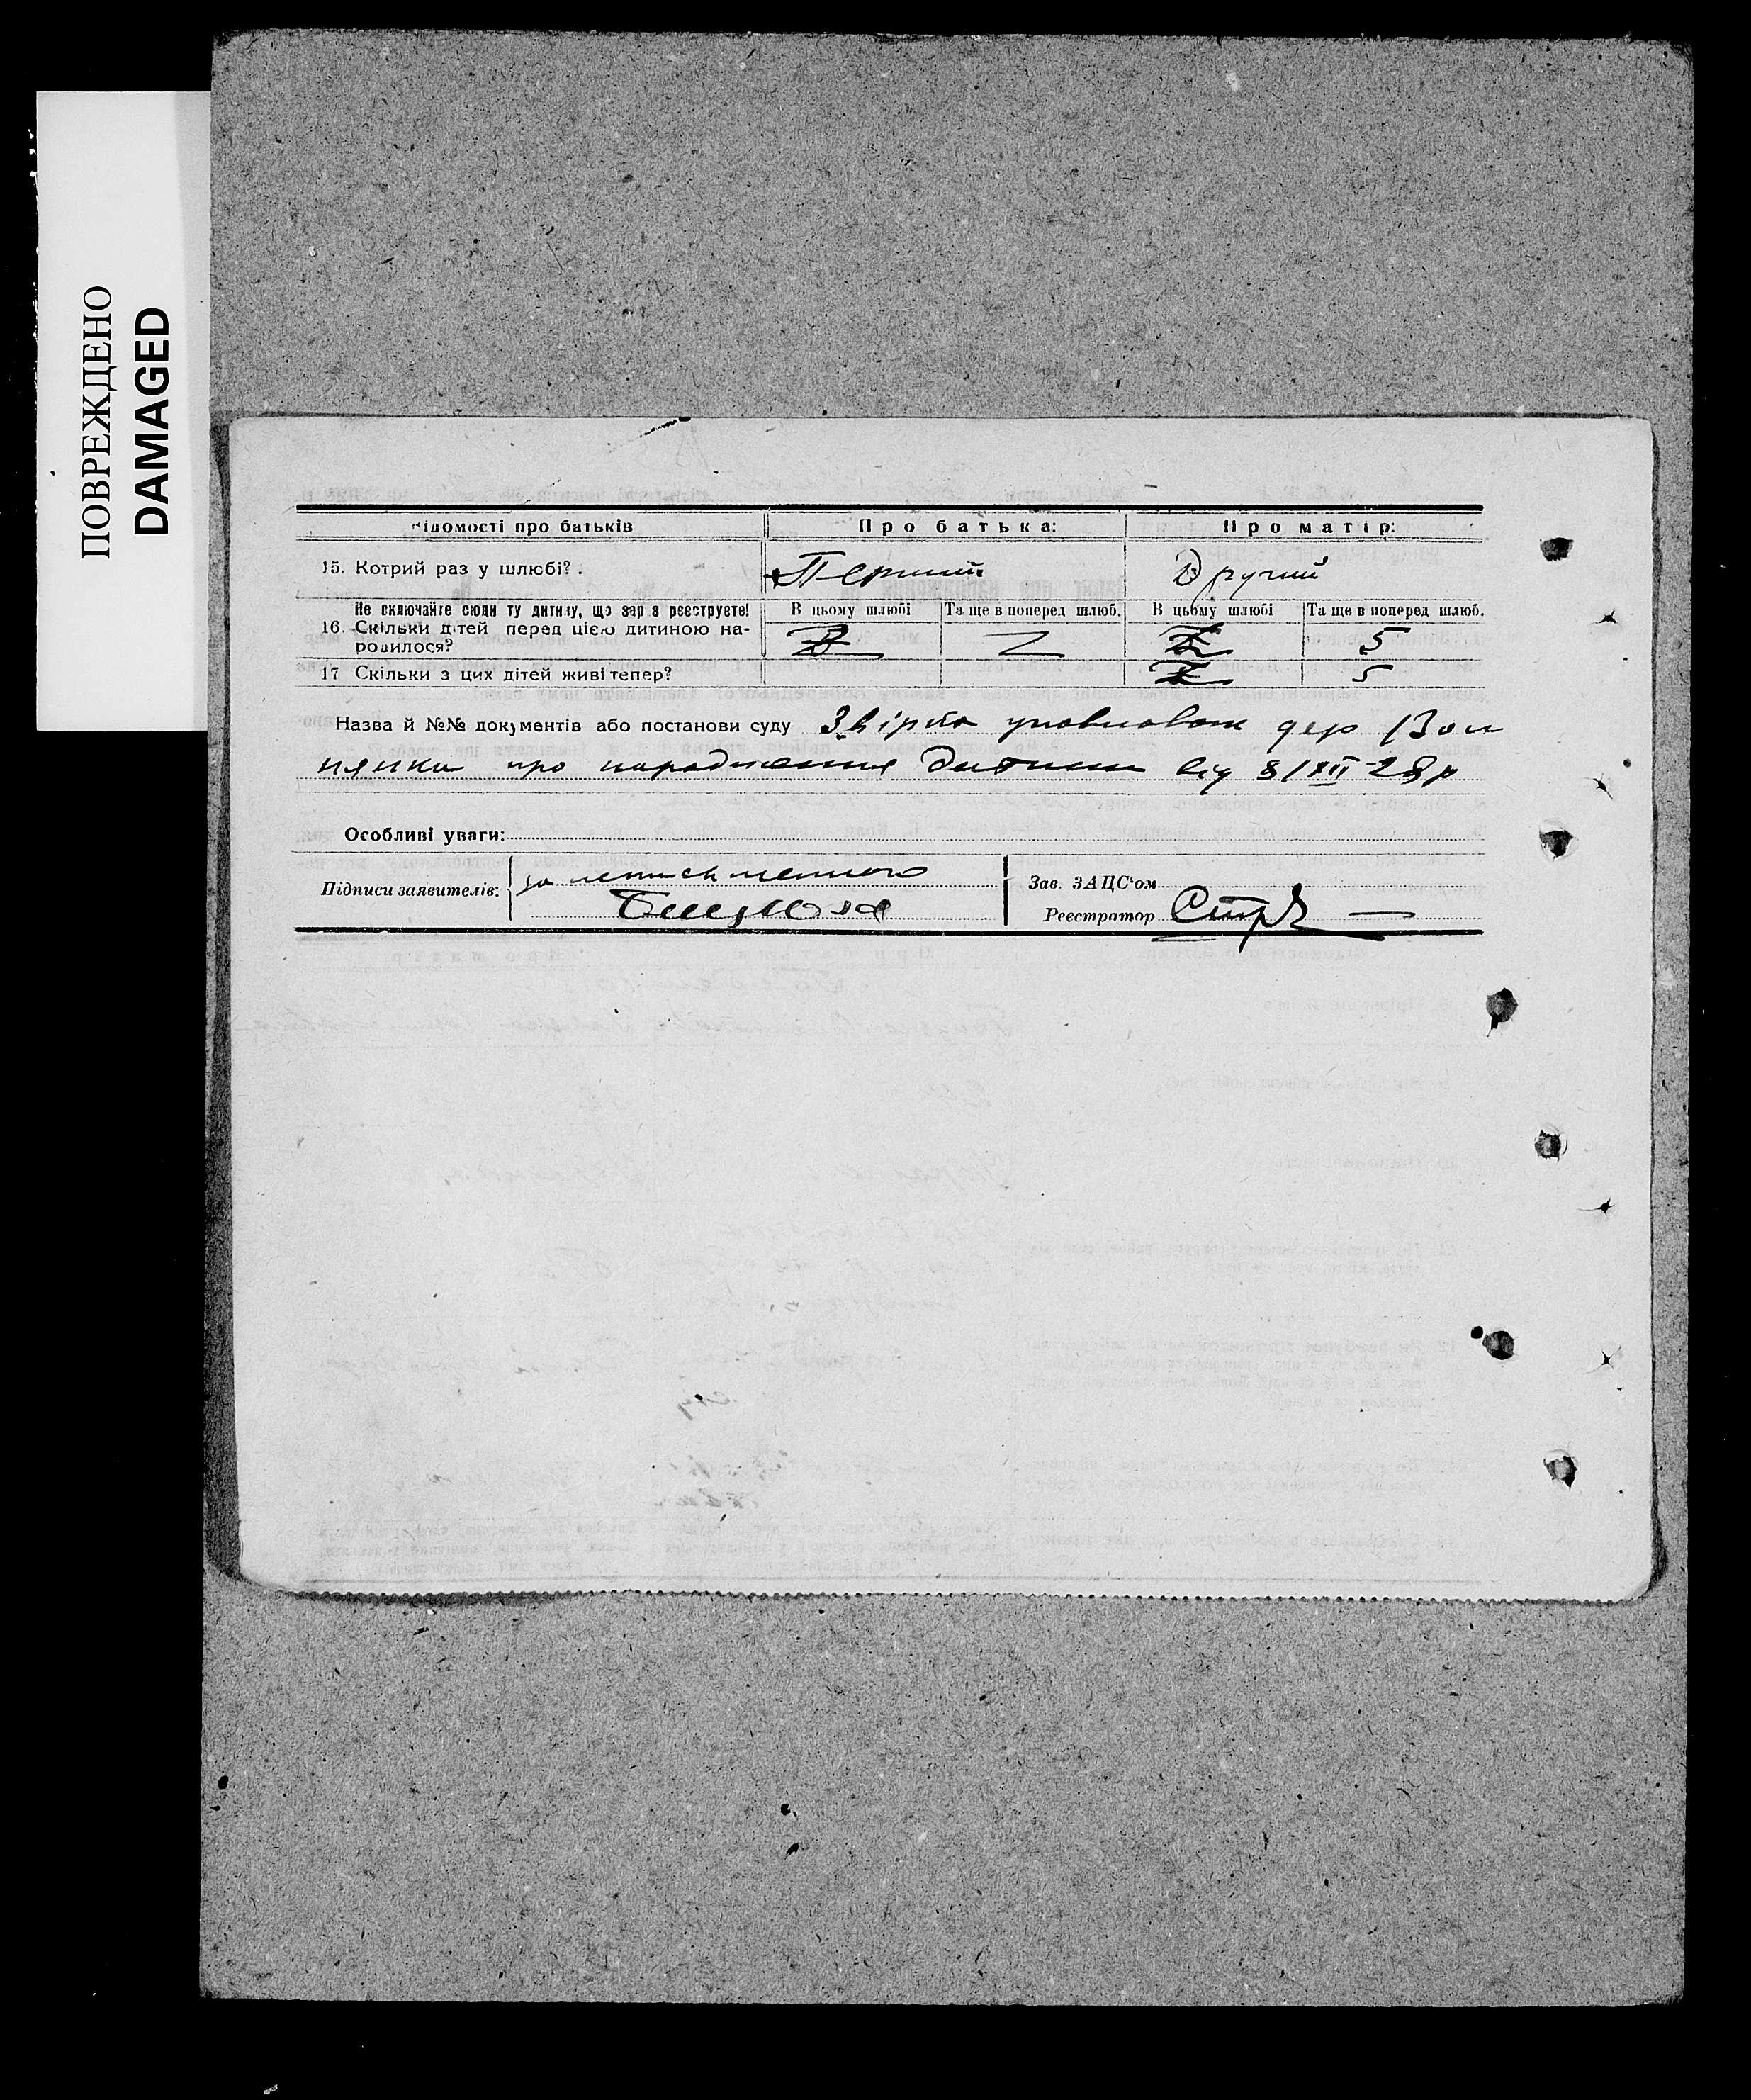 ПОВРЕЖДЕНО
DAMAGED
відомості про батьків
Про батька:
Про матір:
15. Котрий раз у шлюбі?.
Перший
Другий
Не включайте сюди ту дитину, що зараз реєструєте!
В цьому шлюбі
Та ще в поперед шлюб.
В цьому шлюбі
Та ще в поперед шлюб.
16. Скільки дітей перед цією дитиною на-
родилося?
5
17 Скільки з цих дітей живі тепер?
5
Назва й №№ документів або постанови суду
дер
про народження дитини від 8/XII 28 р
Особливі уваги:
Підписи заявителів:
за
Зав. ЗАЦС'ом
Реєстратор